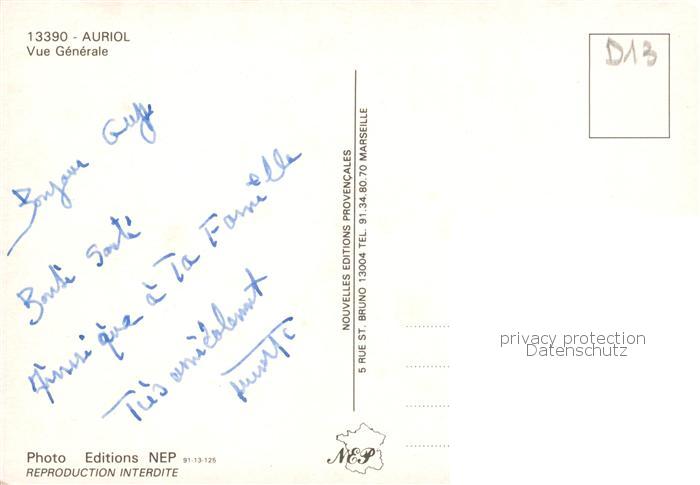 13390 - AURIOL
Vue Générale
D13
Bonjour Guy
Bonté Santé
Ainsi qu'à Ta Famille
Très amicalement
NOUVELLES EDITIONS PROVENÇALES
5 RUE ST. BRUNO 13004 TEL. 91.34.80.70 MARSEILLE
privacy protection
Datenschutz
Photo Editions NEP 91-13-125
REPRODUCTION INTERDITE
NEP